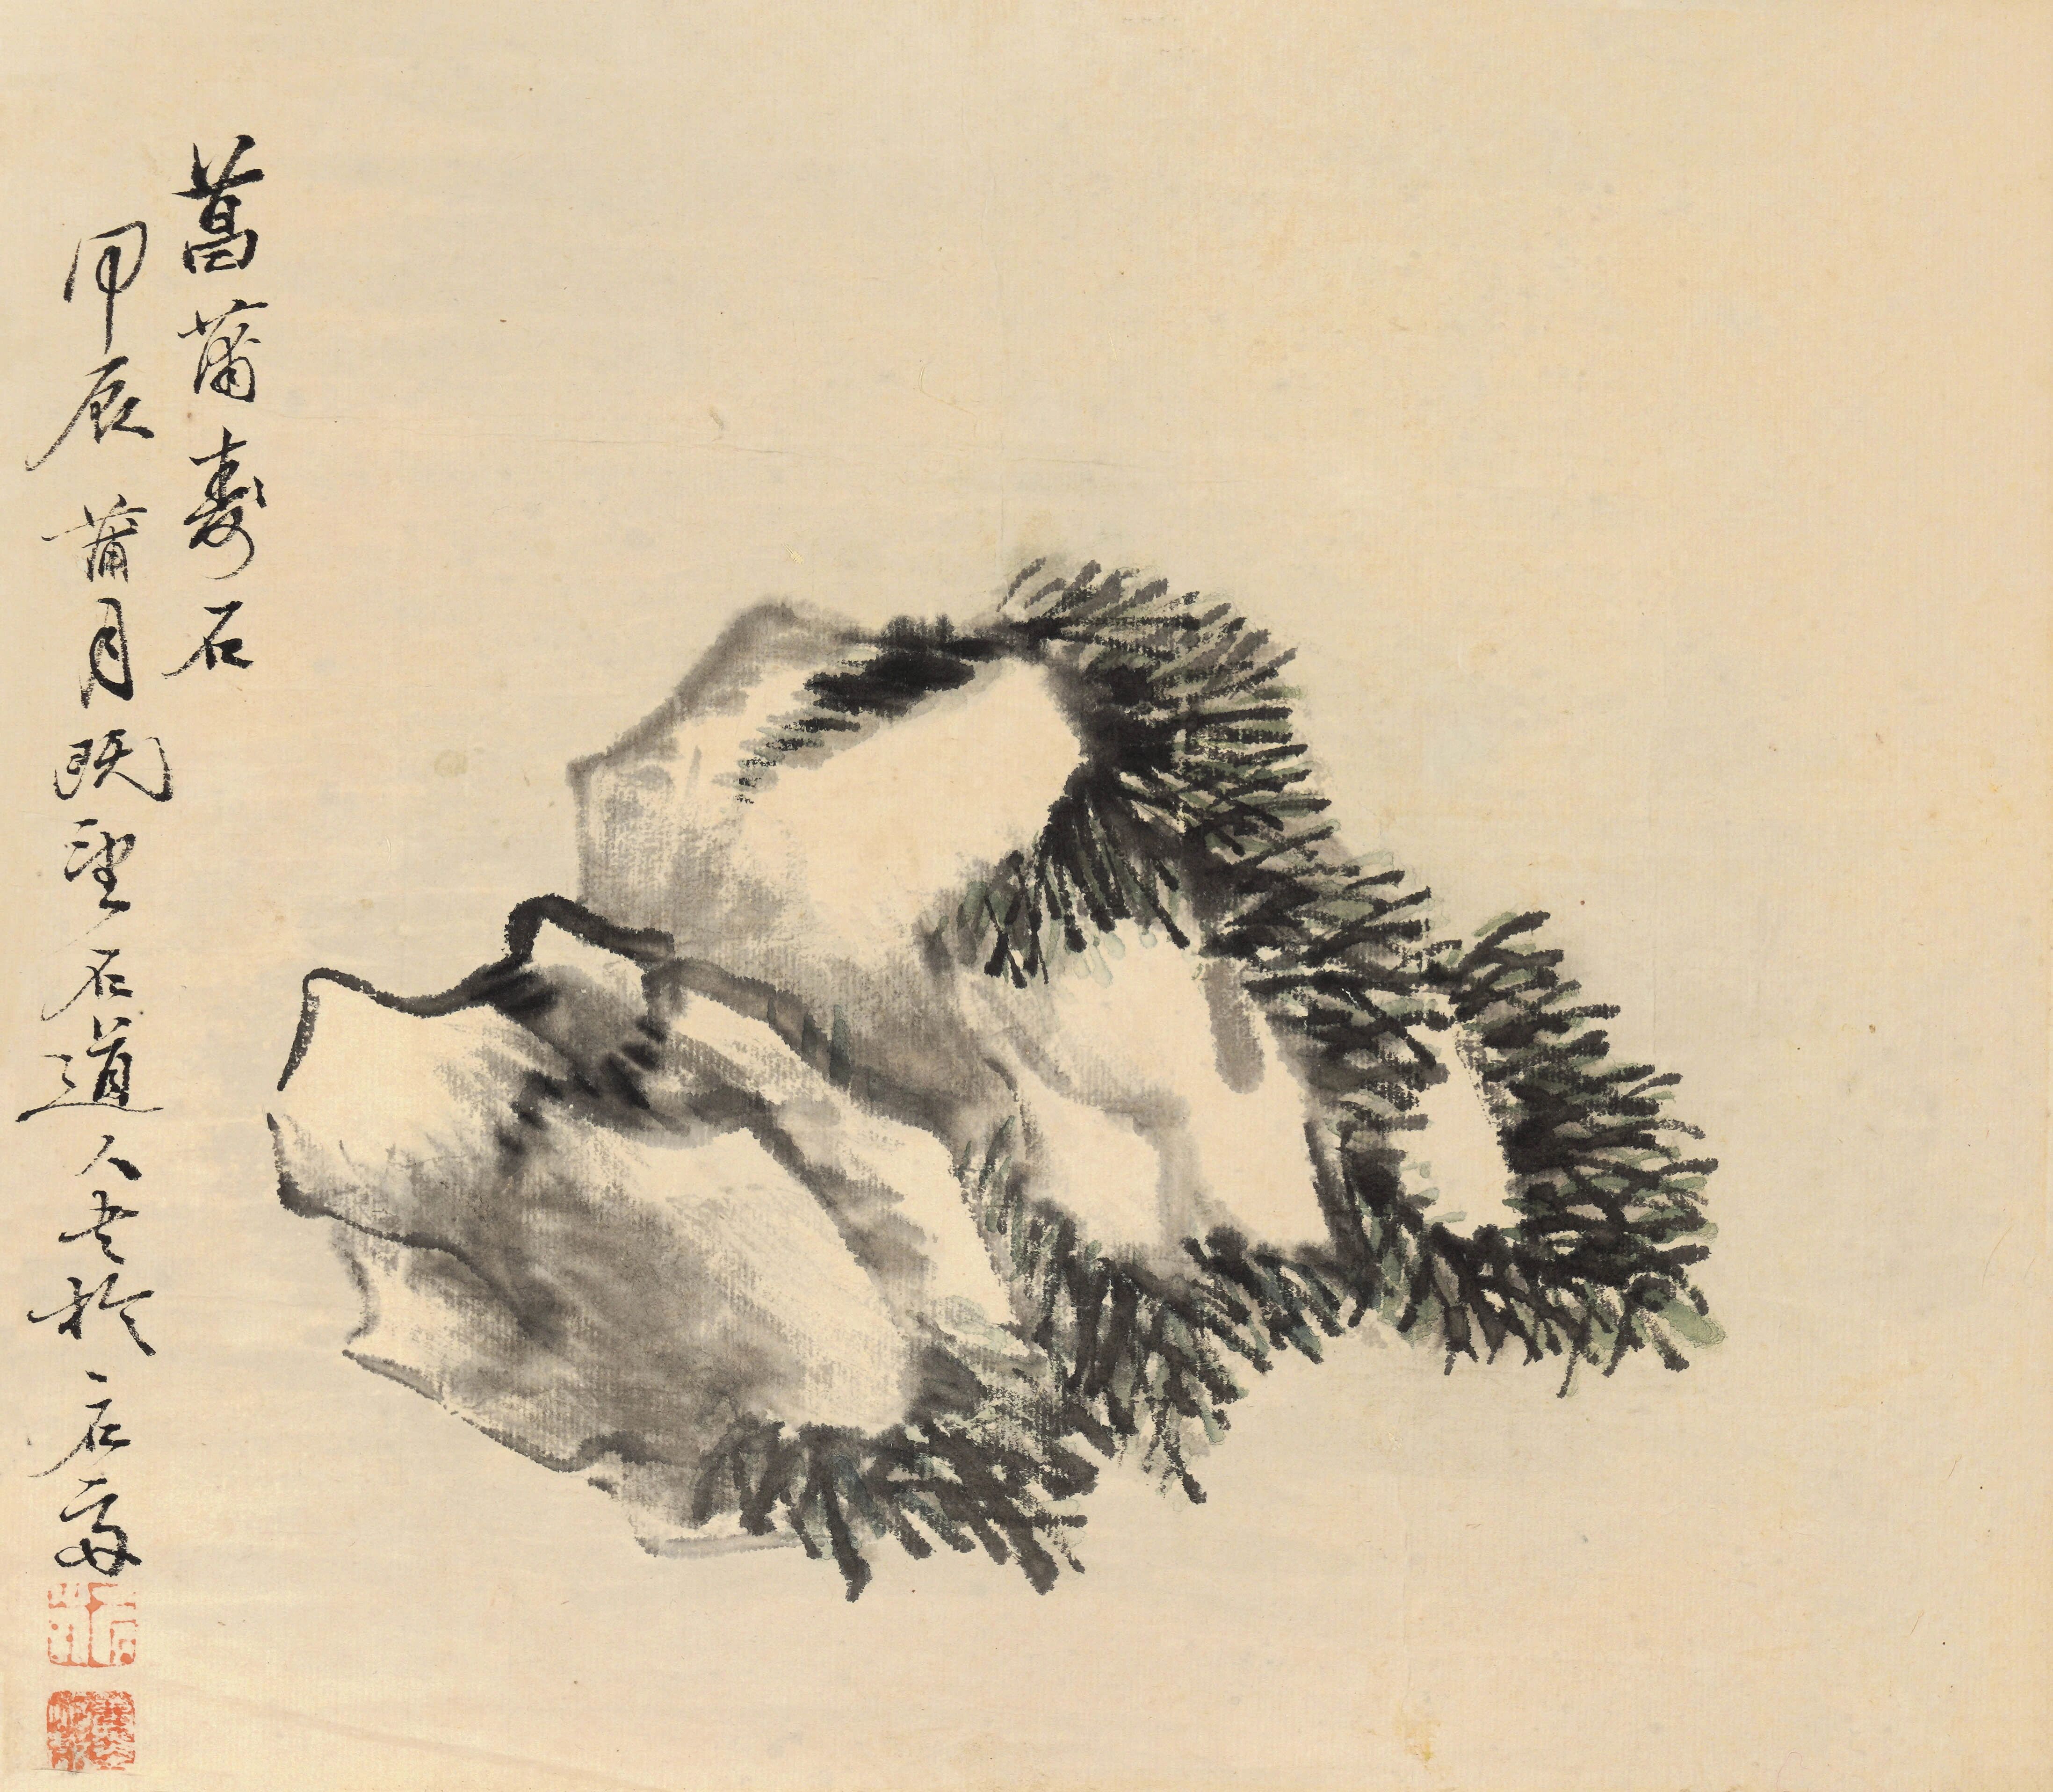 菖蒲壽石
甲辰蒲月既望石道人書於石府